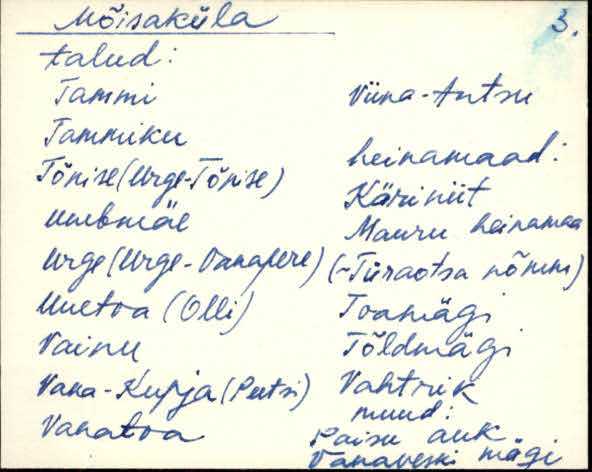 Mõisaküla
3.
talud:
Tammi
Tammiku
Tõnise (Urge-Tõnise)
Uuebmäe
Urge (Urge-Vanapere)
Uuetoa (Olli)
Vainu
Vana-Kupja (Peetsi)
Vanatoa
Viina-Antsu
heinamaad:
Käriniit
Mauru heinamaa
(~Türaotsa nõmm)
Toamägi
Tõldmägi
Vahtrik
muud:
Paisu auk
Vanaveski mägi